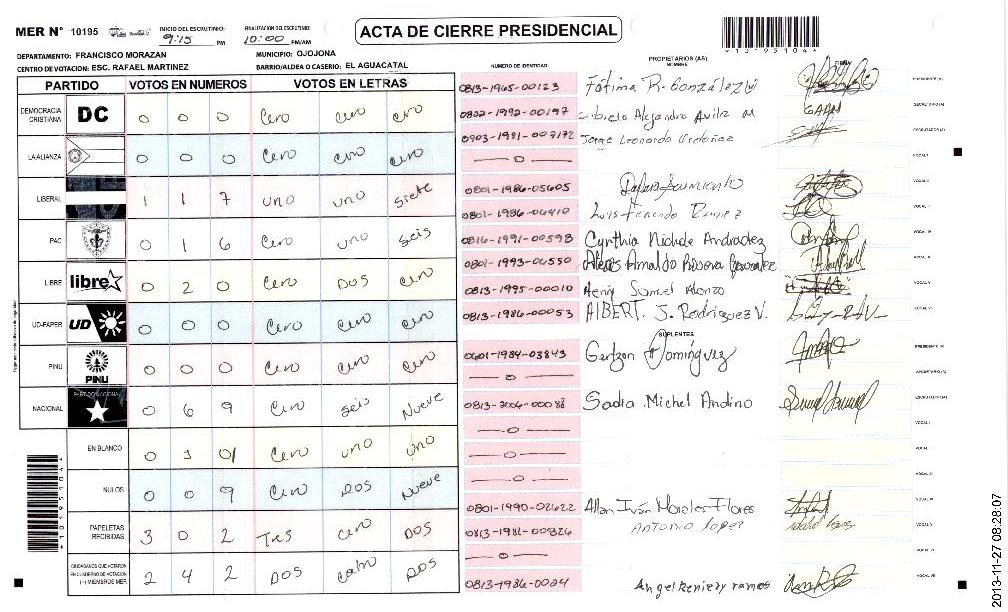 MER N° 10195
INICIO DEL ESCRUTINIO: 9:15 PM
FINALIZACION DEL ESCRUTINIO: 10:00 PM/AM
ACTA DE CIERRE PRESIDENCIAL
DEPARTAMENTO: FRANCISCO MORAZAN
MUNICIPIO: OJOJONA
CENTRO DE VOTACION: ESC. RAFAEL MARTINEZ
BARRIO/ALDEA O CASERIO: EL AGUACATAL
PARTIDO VOTOS EN NUMEROS VOTOS EN LETRAS
DEMOCRACIA CRISTIANA DC 0 0 0 Cero cero cero
LA ALIANZA 0 0 0 Cero cero cero
LIBERAL 1 1 7 uno uno siete
PAC 0 1 6 Cero uno seis
LIBRE libre 0 2 0 Cero DOS Cero
UD-FAPER UD 0 0 0 Cero Cero cero
PINU PINU 0 0 0 Cero cero cero
NACIONAL 0 6 9 Cero seis Nueve
EN BLANCO 0 1 01 Cero uno uno
NULOS 0 0 9 Cero DOS Nueve
PAPELETAS RECIBIDAS 3 0 2 Tres Cero DOS
CIUDADANOS QUE VOTARON EN CUADERNO DE VOTACION (+) MIEMBROS MER 2 4 2 DOS DOS
NUMERO DE IDENTIDAD
PROPIETARIOS (AS)
NOMBRE
FIRMA
0813-1965-00123 Fátima R. González PRESIDENTE (A)
0822-1992-00197 Alejandro Avila M GAAM SECRETARIO (A)
0903-1981-00 Jorge Leonardo ESCRUTADOR (A)
0 VOCAL I
0801-1986-05605 Sarmiento
0801-1986-06410 Luis Fernando
0816-1991-00593 Cynthia Nichole Andradez
0801-1993-04550 Alexis Arnaldo
0813-1995-00010 Henry Samuel Alonzo
0813-1986-00053 ALBERT. J. Rodriguez V.
SUPLENTES
0601-1984-03843 Gertzon Domínguez PRESIDENTE (A)
0 SECRETARIO (A)
0813-2006-00088 Sadia Michel Andino ESCRUTADOR (A)
0
0
0
0801-1990-02622 Allan Iván Morales Flores
0813-1981-00326 Antonio lopez
0
0813-1986-0024 Angel ramos
2013-11-27 08:28:07